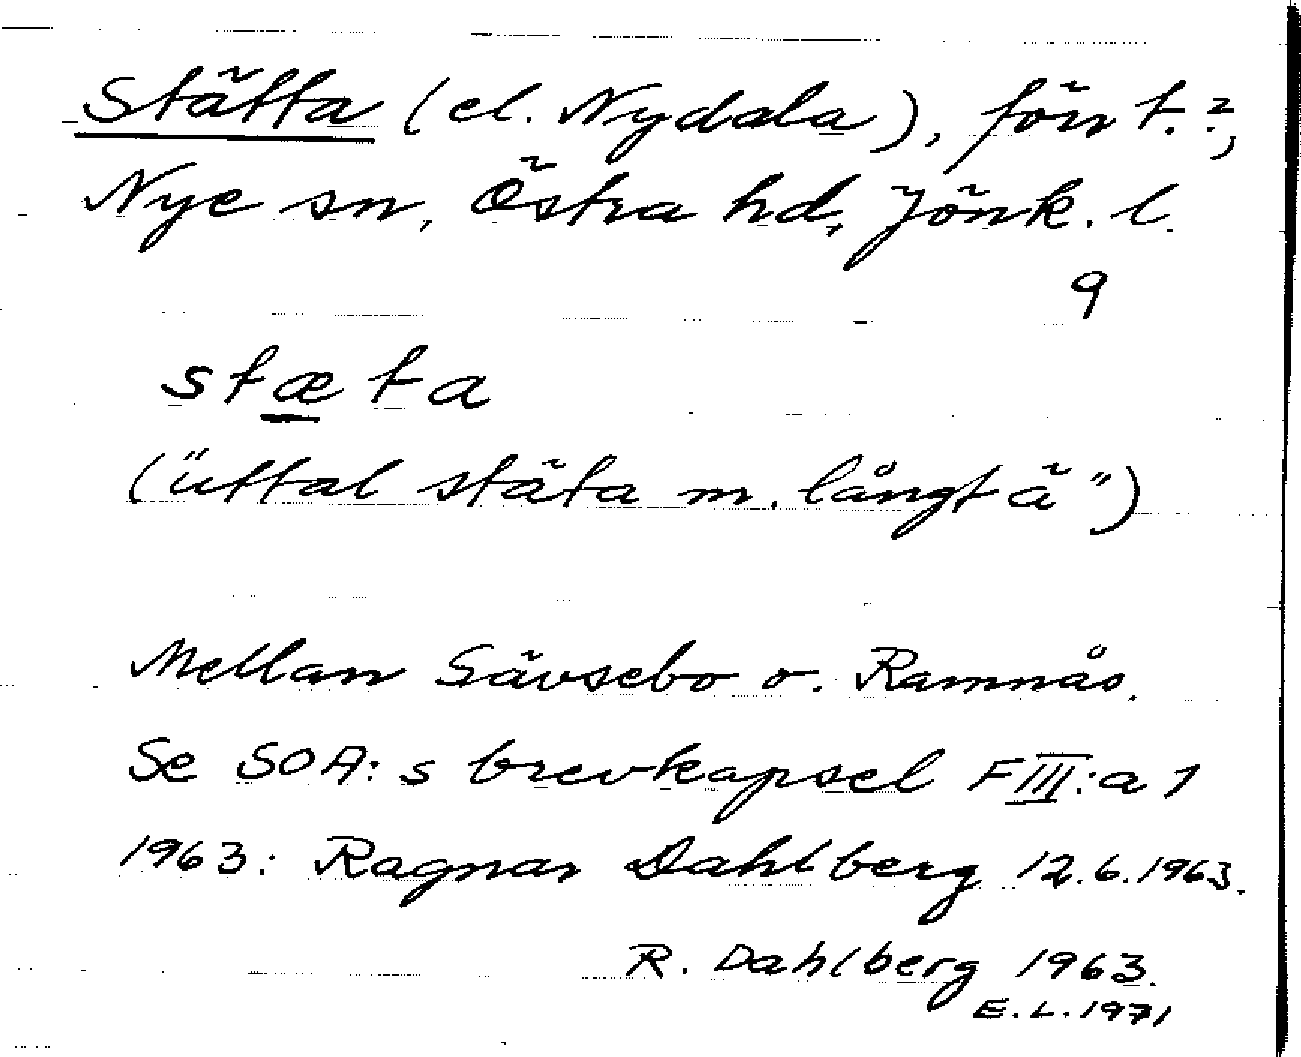 Stätta (el. Nydala), förr t.?,
Nye sn, Östra hd, Jönk. l.
9
stæta
("uttal stäta m. långt ä")
Mellan Sävsebo o. Ramnås.
Se SOA:s brevkapsel F III:a 1
1963: Ragnar Dahlberg 12.6.1963.
R. Dahlberg 1963.
E.L. 1971